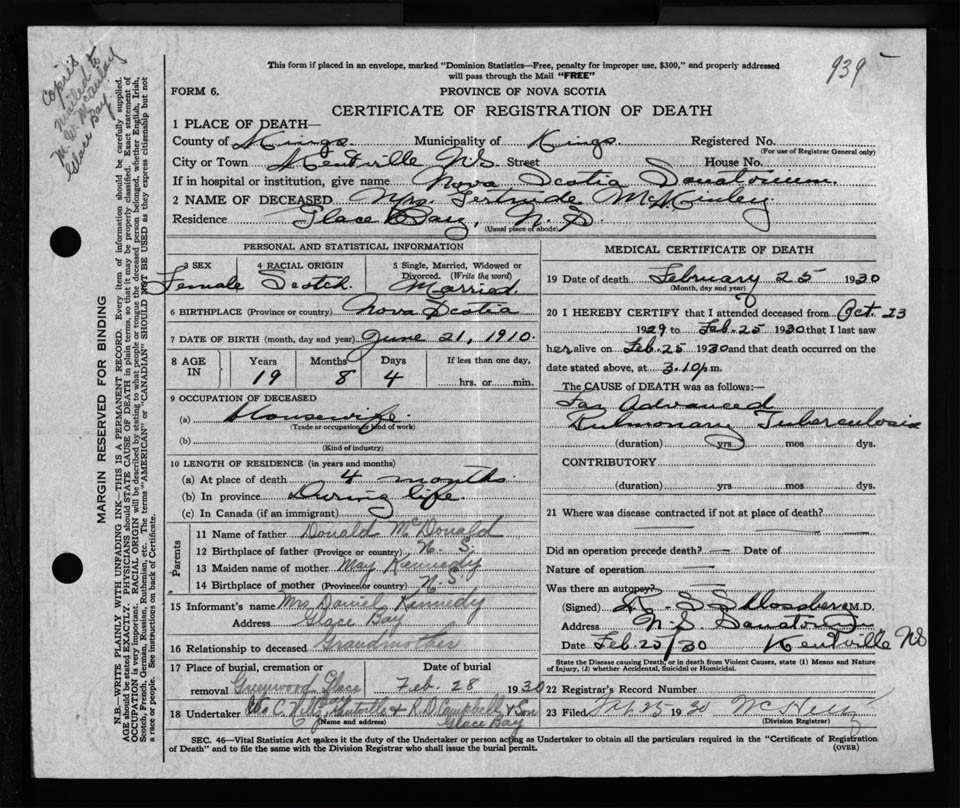 Copies
mailed to
Glace Bay
939
This form if placed in an envelope, marked "Dominion Statistics—Free, penalty for improper use, $300," and properly addressed
will pass through the Mail "FREE"
FORM 6.
PROVINCE OF NOVA SCOTIA
CERTIFICATE OF REGISTRATION OF DEATH
1 PLACE OF DEATH—
County of Kings Municipality of Kings. Registered No.
(For use of Registrar General only)
City or Town Kentville NS Street House No.
If in hospital or institution, give name Nova Scotia Sanatorium.
2 NAME OF DECEASED Mrs. Gertrude McKinley
Residence Glace Bay, N.S.
(Usual place of abode)
PERSONAL AND STATISTICAL INFORMATION
3 SEX 4 RACIAL ORIGIN 5 Single, Married, Widowed or
Divorced. (Write the word)
Female Scotch. Married.
6 BIRTHPLACE (Province or country) Nova Scotia
7 DATE OF BIRTH (month, day and year) June 21, 1910.
8 AGE IN Years Months Days If less than one day,
19 8 4 hrs. or min.
9 OCCUPATION OF DECEASED
(a) Housewife.
(Trade or occupation or kind of work)
(b)
(Kind of industry)
10 LENGTH OF RESIDENCE (in years and months)
(a) At place of death 4 months.
(b) In province During life.
(c) In Canada (if an immigrant)
Parents
11 Name of father Donald McDonald
12 Birthplace of father (Province or country) N. S.
13 Maiden name of mother May Kennedy
14 Birthplace of mother (Province or country) N. S.
15 Informant's name Mrs Daniel Kennedy
Address Glace Bay
16 Relationship to deceased Grandmother
17 Place of burial, cremation or Date of burial
removal Greenwood Glace Bay Feb. 28 1930
18 Undertaker Kentville & R. D. Campbell & Son
(Name and address) Glace Bay
MEDICAL CERTIFICATE OF DEATH
19 Date of death February 25 1930
(Month, day and year)
20 I HEREBY CERTIFY that I attended deceased from Oct. 23
1929 to Feb. 25 1930 that I last saw
her alive on Feb. 25 1930 and that death occurred on the
date stated above, at 3.10 p.m.
The CAUSE OF DEATH was as follows:—
Far Advanced
Pulmonary Tuberculosis
(duration) yrs. mos. dys.
CONTRIBUTORY
(duration) yrs. mos. dys.
21 Where was disease contracted if not at place of death?
Did an operation precede death? — Date of
Nature of operation —
Was there an autopsy? —
(Signed) M.D.
Address N.S. Sanatorium
Date Feb. 25/30 Kentville NS
State the Disease causing Death, or in death from Violent Causes, state (1) Means and Nature
of Injury, (2) whether Accidental, Suicidal or Homicidal.
22 Registrar's Record Number
23 Filed Feb 25 1930
(Division Registrar)
SEC. 46—Vital Statistics Act makes it the duty of the Undertaker or person acting as Undertaker to obtain all the particulars required in the "Certificate of Registration
of Death" and to file the same with the Division Registrar who shall issue the burial permit.
(OVER)
MARGIN RESERVED FOR BINDING
N.B.—WRITE PLAINLY WITH UNFADING INK—THIS IS A PERMANENT RECORD. Every item of information should be carefully supplied.
AGE should be stated EXACTLY. PHYSICIANS should STATE CAUSE OF DEATH in plain terms, so that it may be properly classified. Exact statement of
OCCUPATION is very important. RACIAL ORIGIN will be described by stating to what people or tongue the deceased person belonged, whether English, Irish,
Scotch, French, German, Russian, Ruthenian, etc. The terms "AMERICAN" or "CANADIAN" SHOULD NOT BE USED as they express citizenship but not
a race or people. See instructions on back of Certificate.